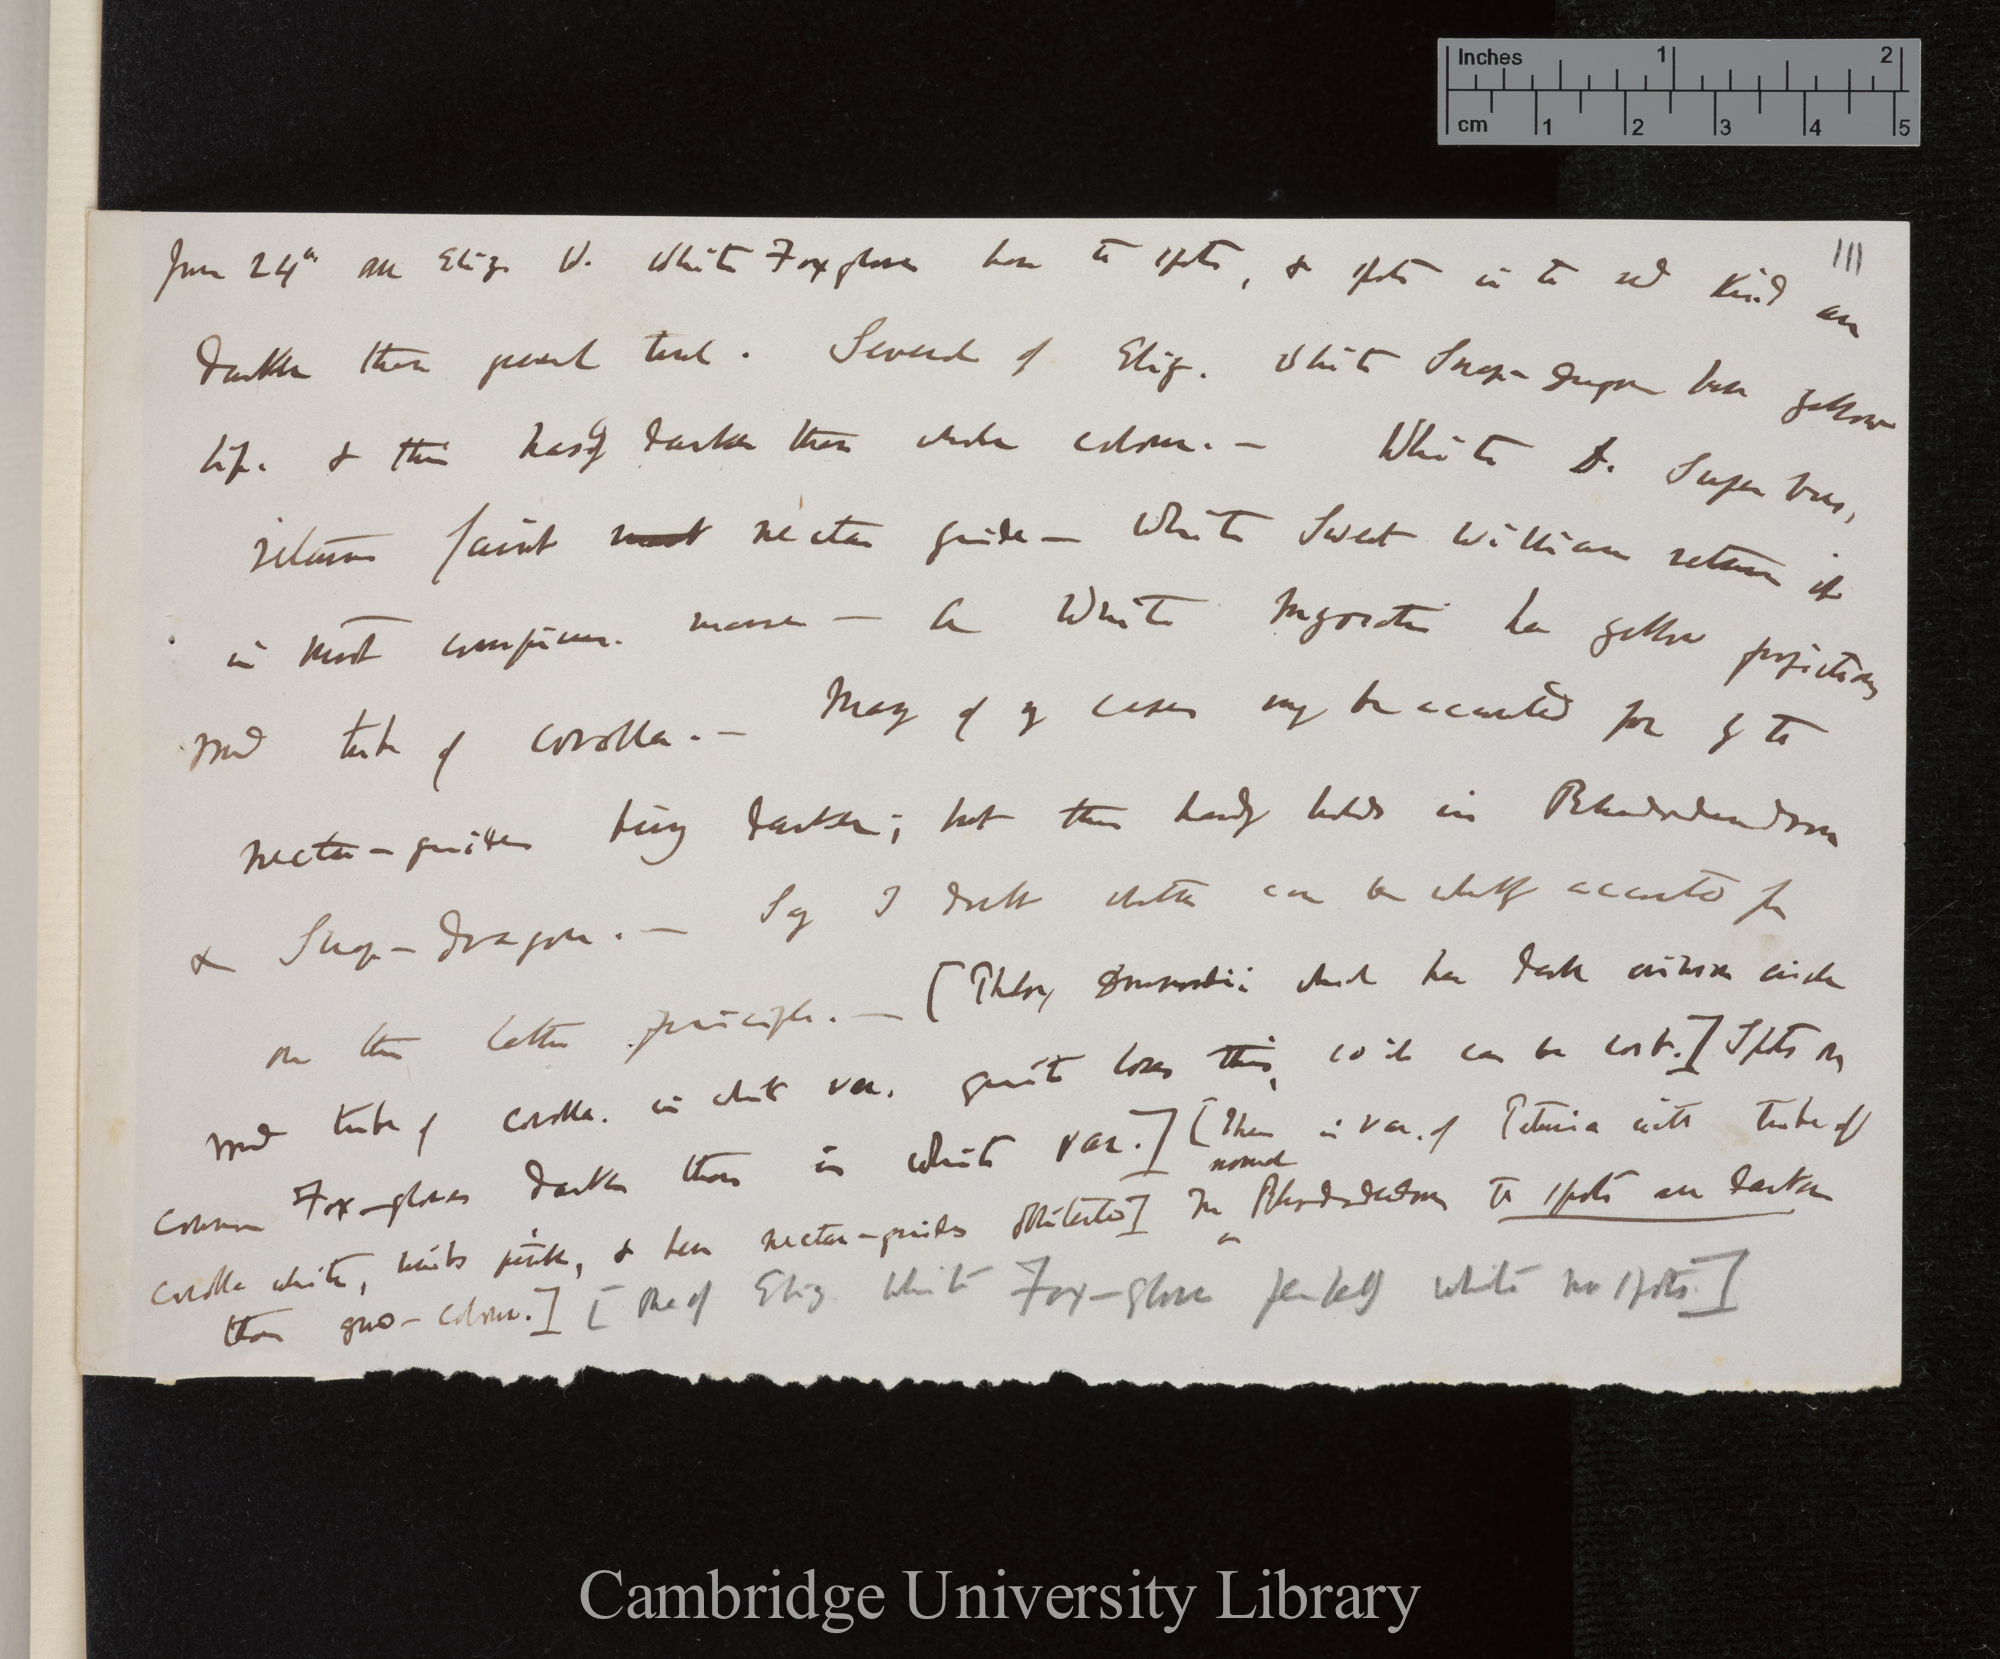 Inches 1 2
cm 1 2 3 4 5
111
June 24th all Eliz. W. White Foxgloves have the spots, & spots in the red kind are
darker than general tint. Several of Eliz. White Snap-dragon have yellow
lip. & this hardly darker than whole colour. — White D. Superbus,
retains faint nectar guide — White Sweet William retains it
in most conspicuous manner — A White Myosotis has yellow projections
round tube of corolla. — Many of cases may be accounted for by the
nectar-guides being darker; but this hardly holds in Rhododendrons
& Snap-dragon. — Say I doubt whether can be wholly accounted for
on this latter principle. — [Phlox Drummondii which has dark crimson circle
round tube of corolla. in white var. quite loses this, so it can be lost.] Spots on
common Fox-gloves darker than in white var.] [When in var. of Petunia with tube of
corolla white, limbs pink, & here nectar-guides obliterated] In normal Rhododendrons the spots are darker
than grd-colour.] [One of Eliz White Fox-glove perfectly white no spots.]
Cambridge University Library